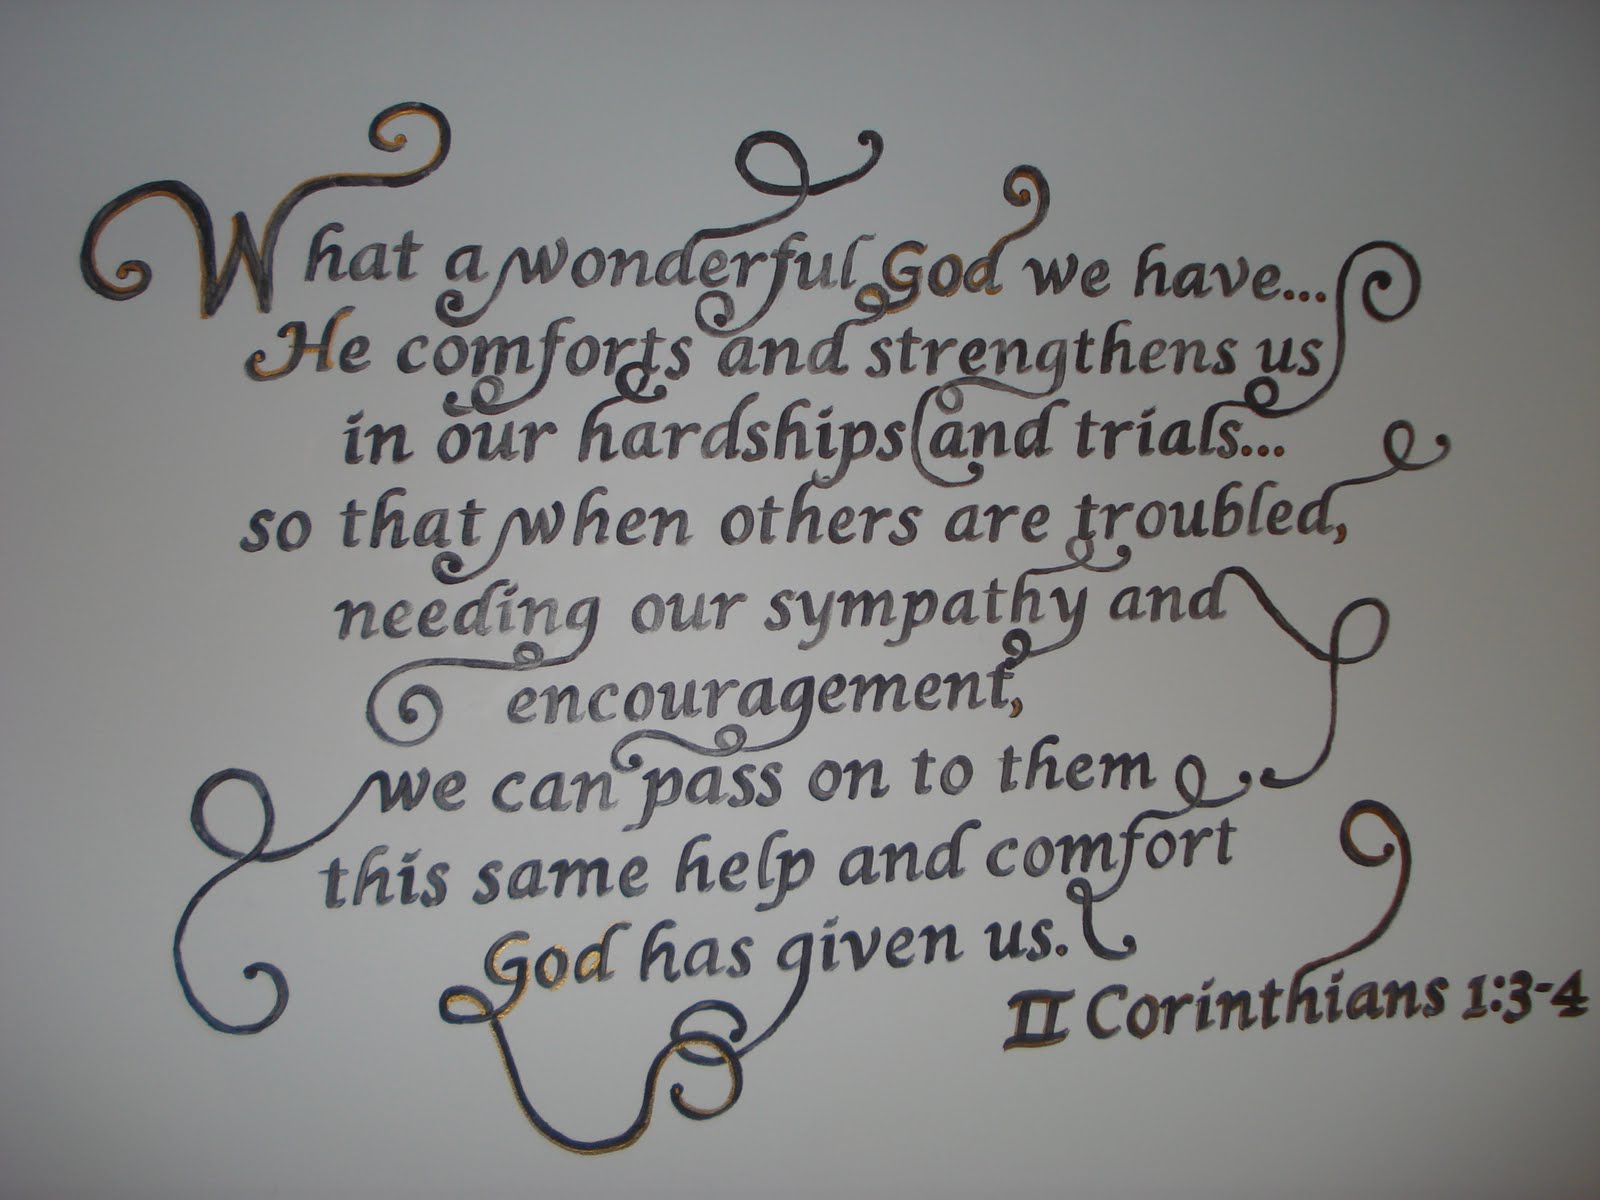 What a wonderful God we have...
He comforts and strengthens us
in our hardships and trials...
so that when others are troubled,
needing our sympathy and
encouragement,
we can pass on to them
this same help and comfort
God has given us.
II Corinthians 1:3-4